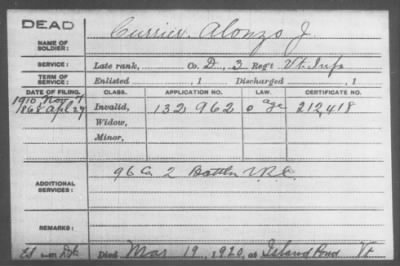 DEAD
NAME OF SOLDIER: Currier, Alonzo J.
SERVICE: Late rank, Co. D, 3 Reg't Vt. Inf.
TERM OF SERVICE: Enlisted , 1 Discharged , 1
DATE OF FILING. CLASS. APPLICATION NO. LAW. CERTIFICATE NO.
1910 Nov 7
1868 Apl 27 Invalid, 132,962 age 212,418
Widow,
Minor,
ADDITIONAL SERVICES: 96 Co 2 Battn V.R.C.
REMARKS:
Died Mar 19, 1920, at Island Pond Vt